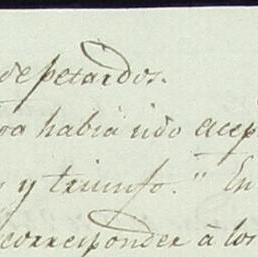 de petardos.
ra habia sido acep
y triunfo." En
corresponder á los